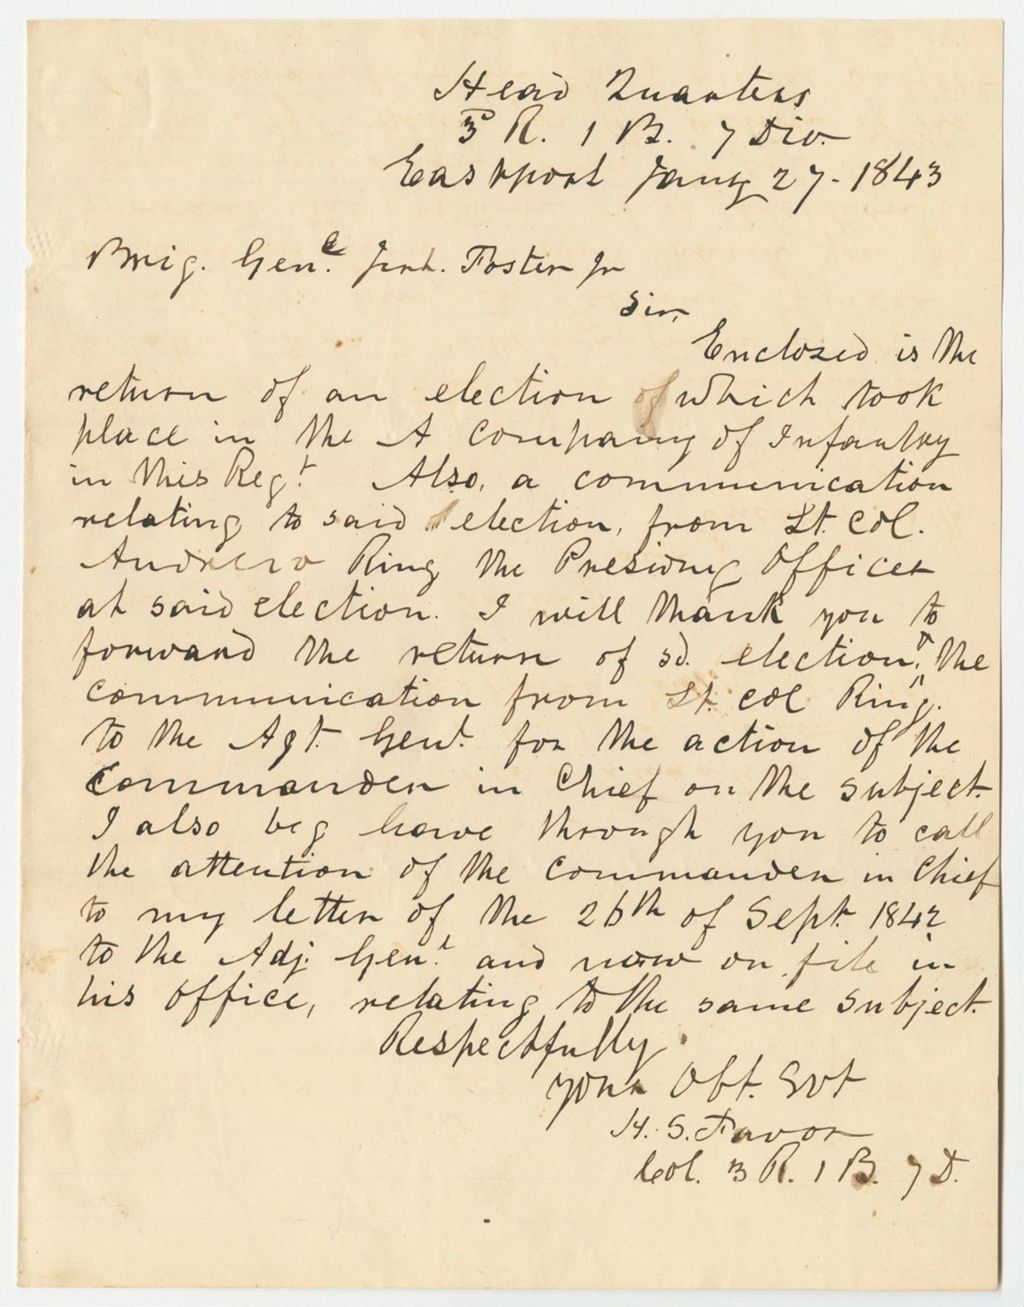 Head Quarters
3d R. 1 B. 7 Div.
Eastport Jany 27 - 1843
Brig. Genl. Jerh. Foster Jr
Sir,
Enclosed is the
return of an election of which took
place in the A Company of Infantry
in this Regt. Also, a communication
relating to said election, from Lt. Col.
Andrew Ring the Presiding Officer
at said election. I will thank you to
forward the return of sd. election, & the
communication from Lt. Col Ring.
to the Agt. Genl. for the action of the
Commander in Chief on the subject.
I also beg leave through you to call
the attention of the Commander in Chief
to my letter of the 26th of Sept. 1842
to the Adj. Genl. and now on file in
his office, relating to the same subject.
Respectfully
your Obt. Svt
H. S. Favor
Col. 3 R. 1 B. 7 D.